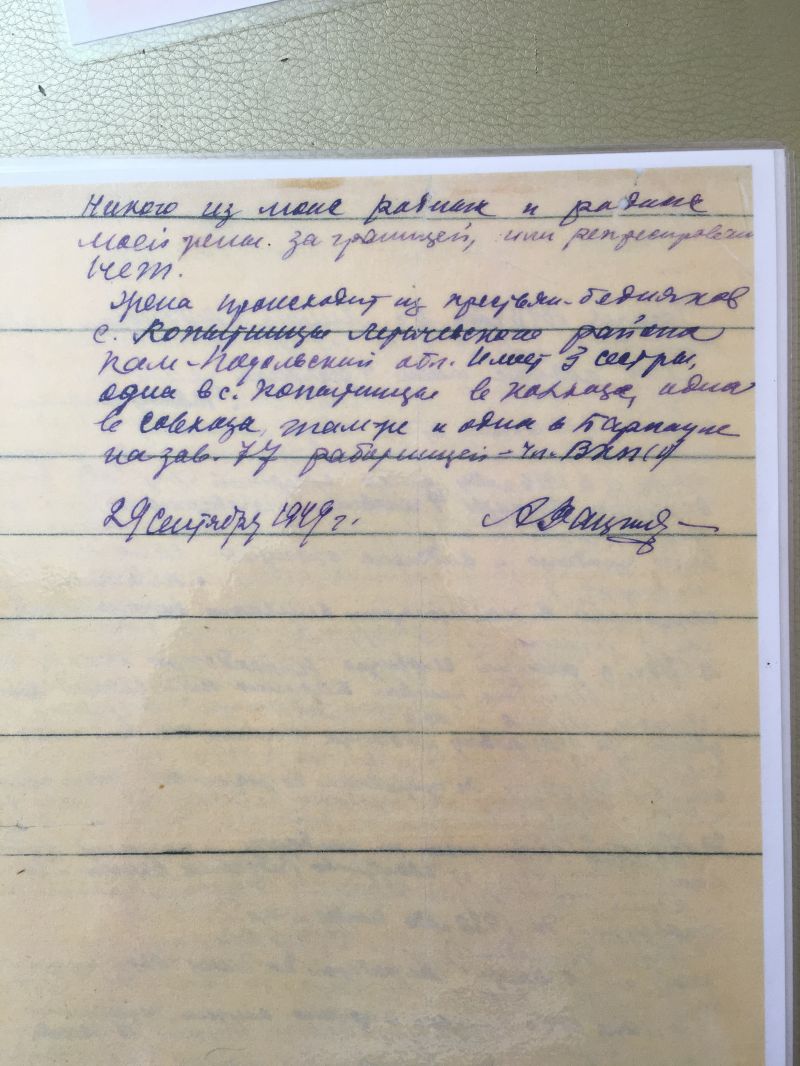 Никого из моих родных и родных
моей жены за границей, или репрессированных
нет.
Жена происходит из крестьян-бедняков
с. Копытинцы Летичевского района
Кам-Подольский обл. Имеет 3 сестры,
одна в с. Копытинцы в колхозе, одна
в совхозе, там-же и одна в Барнауле
на зав. 77 работницей - чл. ВКП(б)
29 сентября 1949 г.